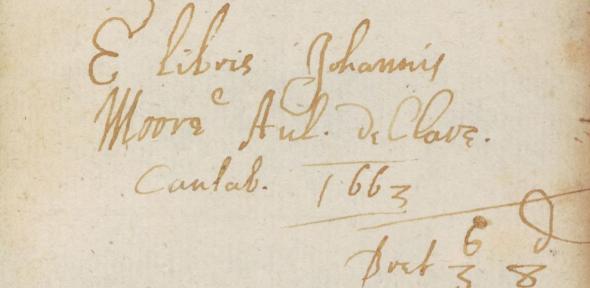 E libris Johannis
Moore Aul. de Clare.
Cantab. 1663
s d
Pret 3 8